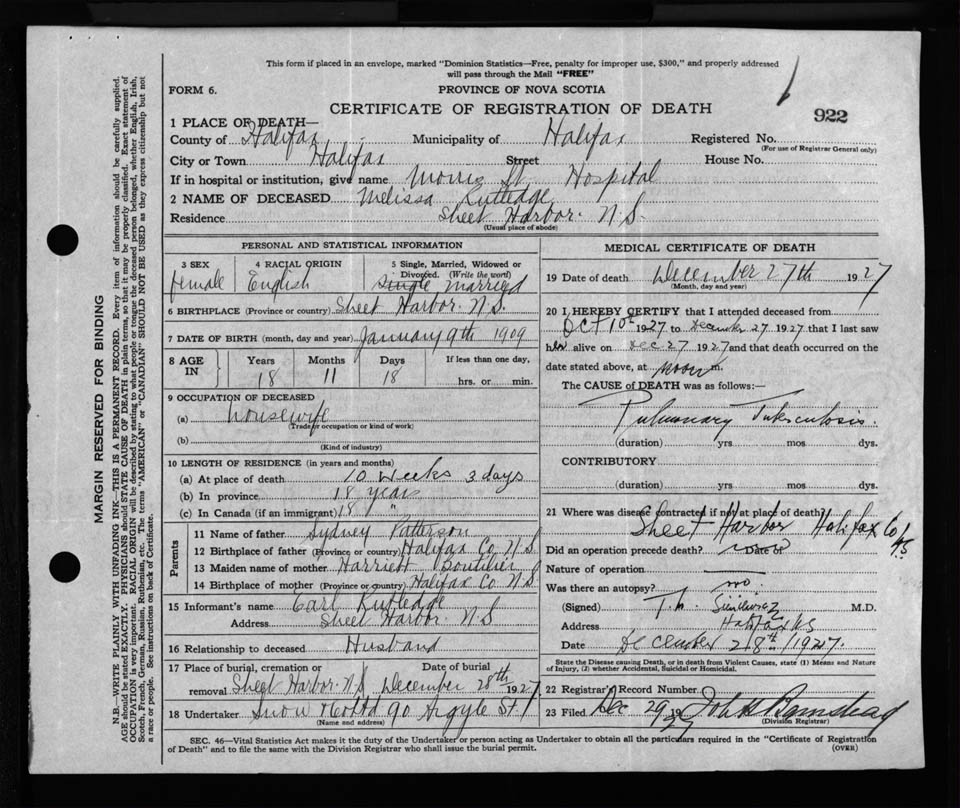 This form if placed in an envelope, marked "Dominion Statistics—Free, penalty for improper use, $300," and properly addressed
will pass through the Mail "FREE"
FORM 6. PROVINCE OF NOVA SCOTIA
CERTIFICATE OF REGISTRATION OF DEATH 922
1 PLACE OF DEATH—
County of Halifax Municipality of Halifax Registered No.
(For use of Registrar General only)
City or Town Halifax Street House No.
If in hospital or institution, give name Morris St. Hospital
2 NAME OF DECEASED Melissa Rutledge
Residence Sheet Harbor. N.S.
(Usual place of abode)
PERSONAL AND STATISTICAL INFORMATION
3 SEX 4 RACIAL ORIGIN 5 Single, Married, Widowed or
Divorced. (Write the word)
Female English single married
6 BIRTHPLACE (Province or country) Sheet Harbor. N.S.
7 DATE OF BIRTH (month, day and year) January 9th 1909
8 AGE IN Years Months Days If less than one day,
18 11 18 hrs. or min.
9 OCCUPATION OF DECEASED
(a) housewife
(Trade or occupation or kind of work)
(b)
(Kind of industry)
10 LENGTH OF RESIDENCE (in years and months)
(a) At place of death 10 weeks 3 days
(b) In province 18 years
(c) In Canada (if an immigrant) 18 "
Parents
11 Name of father Sydney Patterson
12 Birthplace of father (Province or country) Halifax Co N.S.
13 Maiden name of mother Harriett Boutilier
14 Birthplace of mother (Province or country) Halifax Co N.S.
15 Informant's name Earl Rutledge
Address Sheet Harbor. N.S
16 Relationship to deceased Husband
17 Place of burial, cremation or Date of burial
removal Sheet Harbor. N.S. December 28th 1927
18 Undertaker Snow 90 Argyle St.
(Name and address)
MEDICAL CERTIFICATE OF DEATH
19 Date of death December 27th 1927
(Month, day and year)
20 I HEREBY CERTIFY that I attended deceased from
Oct 10th 1927 to December 27 1927 that I last saw
her alive on Dec 27 1927 and that death occurred on the
date stated above, at noon m.
The CAUSE of DEATH was as follows:—
Pulmonary Tuberculosis.
(duration) yrs mos dys.
CONTRIBUTORY
(duration) yrs. mos. dys.
21 Where was disease contracted if not at place of death?
Sheet Harbor Halifax Co N.S
Did an operation precede death? Date of
Nature of operation
Was there an autopsy? no.
(Signed) M.D.
Address Halifax NS
Date December 28th 1927.
State the Disease causing Death, or in death from Violent Causes, state (1) Means and Nature
of Injury, (2) whether Accidental, Suicidal or Homicidal.
22 Registrar's Record Number
23 Filed Dec 29 1927 John
(Division Registrar)
SEC. 46—Vital Statistics Act makes it the duty of the Undertaker or person acting as Undertaker to obtain all the particulars required in the "Certificate of Registration
of Death" and to file the same with the Division Registrar who shall issue the burial permit. (OVER)
MARGIN RESERVED FOR BINDING
N.B.—WRITE PLAINLY WITH UNFADING INK—THIS IS A PERMANENT RECORD. Every item of information should be carefully supplied.
AGE should be stated EXACTLY. PHYSICIANS should STATE CAUSE OF DEATH in plain terms, so that it may be properly classified. Exact statement of
OCCUPATION is very important. RACIAL ORIGIN will be described by stating to what people or tongue the deceased person belonged, whether English, Irish,
Scotch, French, German, Russian, Ruthenian, etc. The terms "AMERICAN" or "CANADIAN" SHOULD NOT BE USED as they express citizenship but not
a race or people. See instructions on back of Certificate.